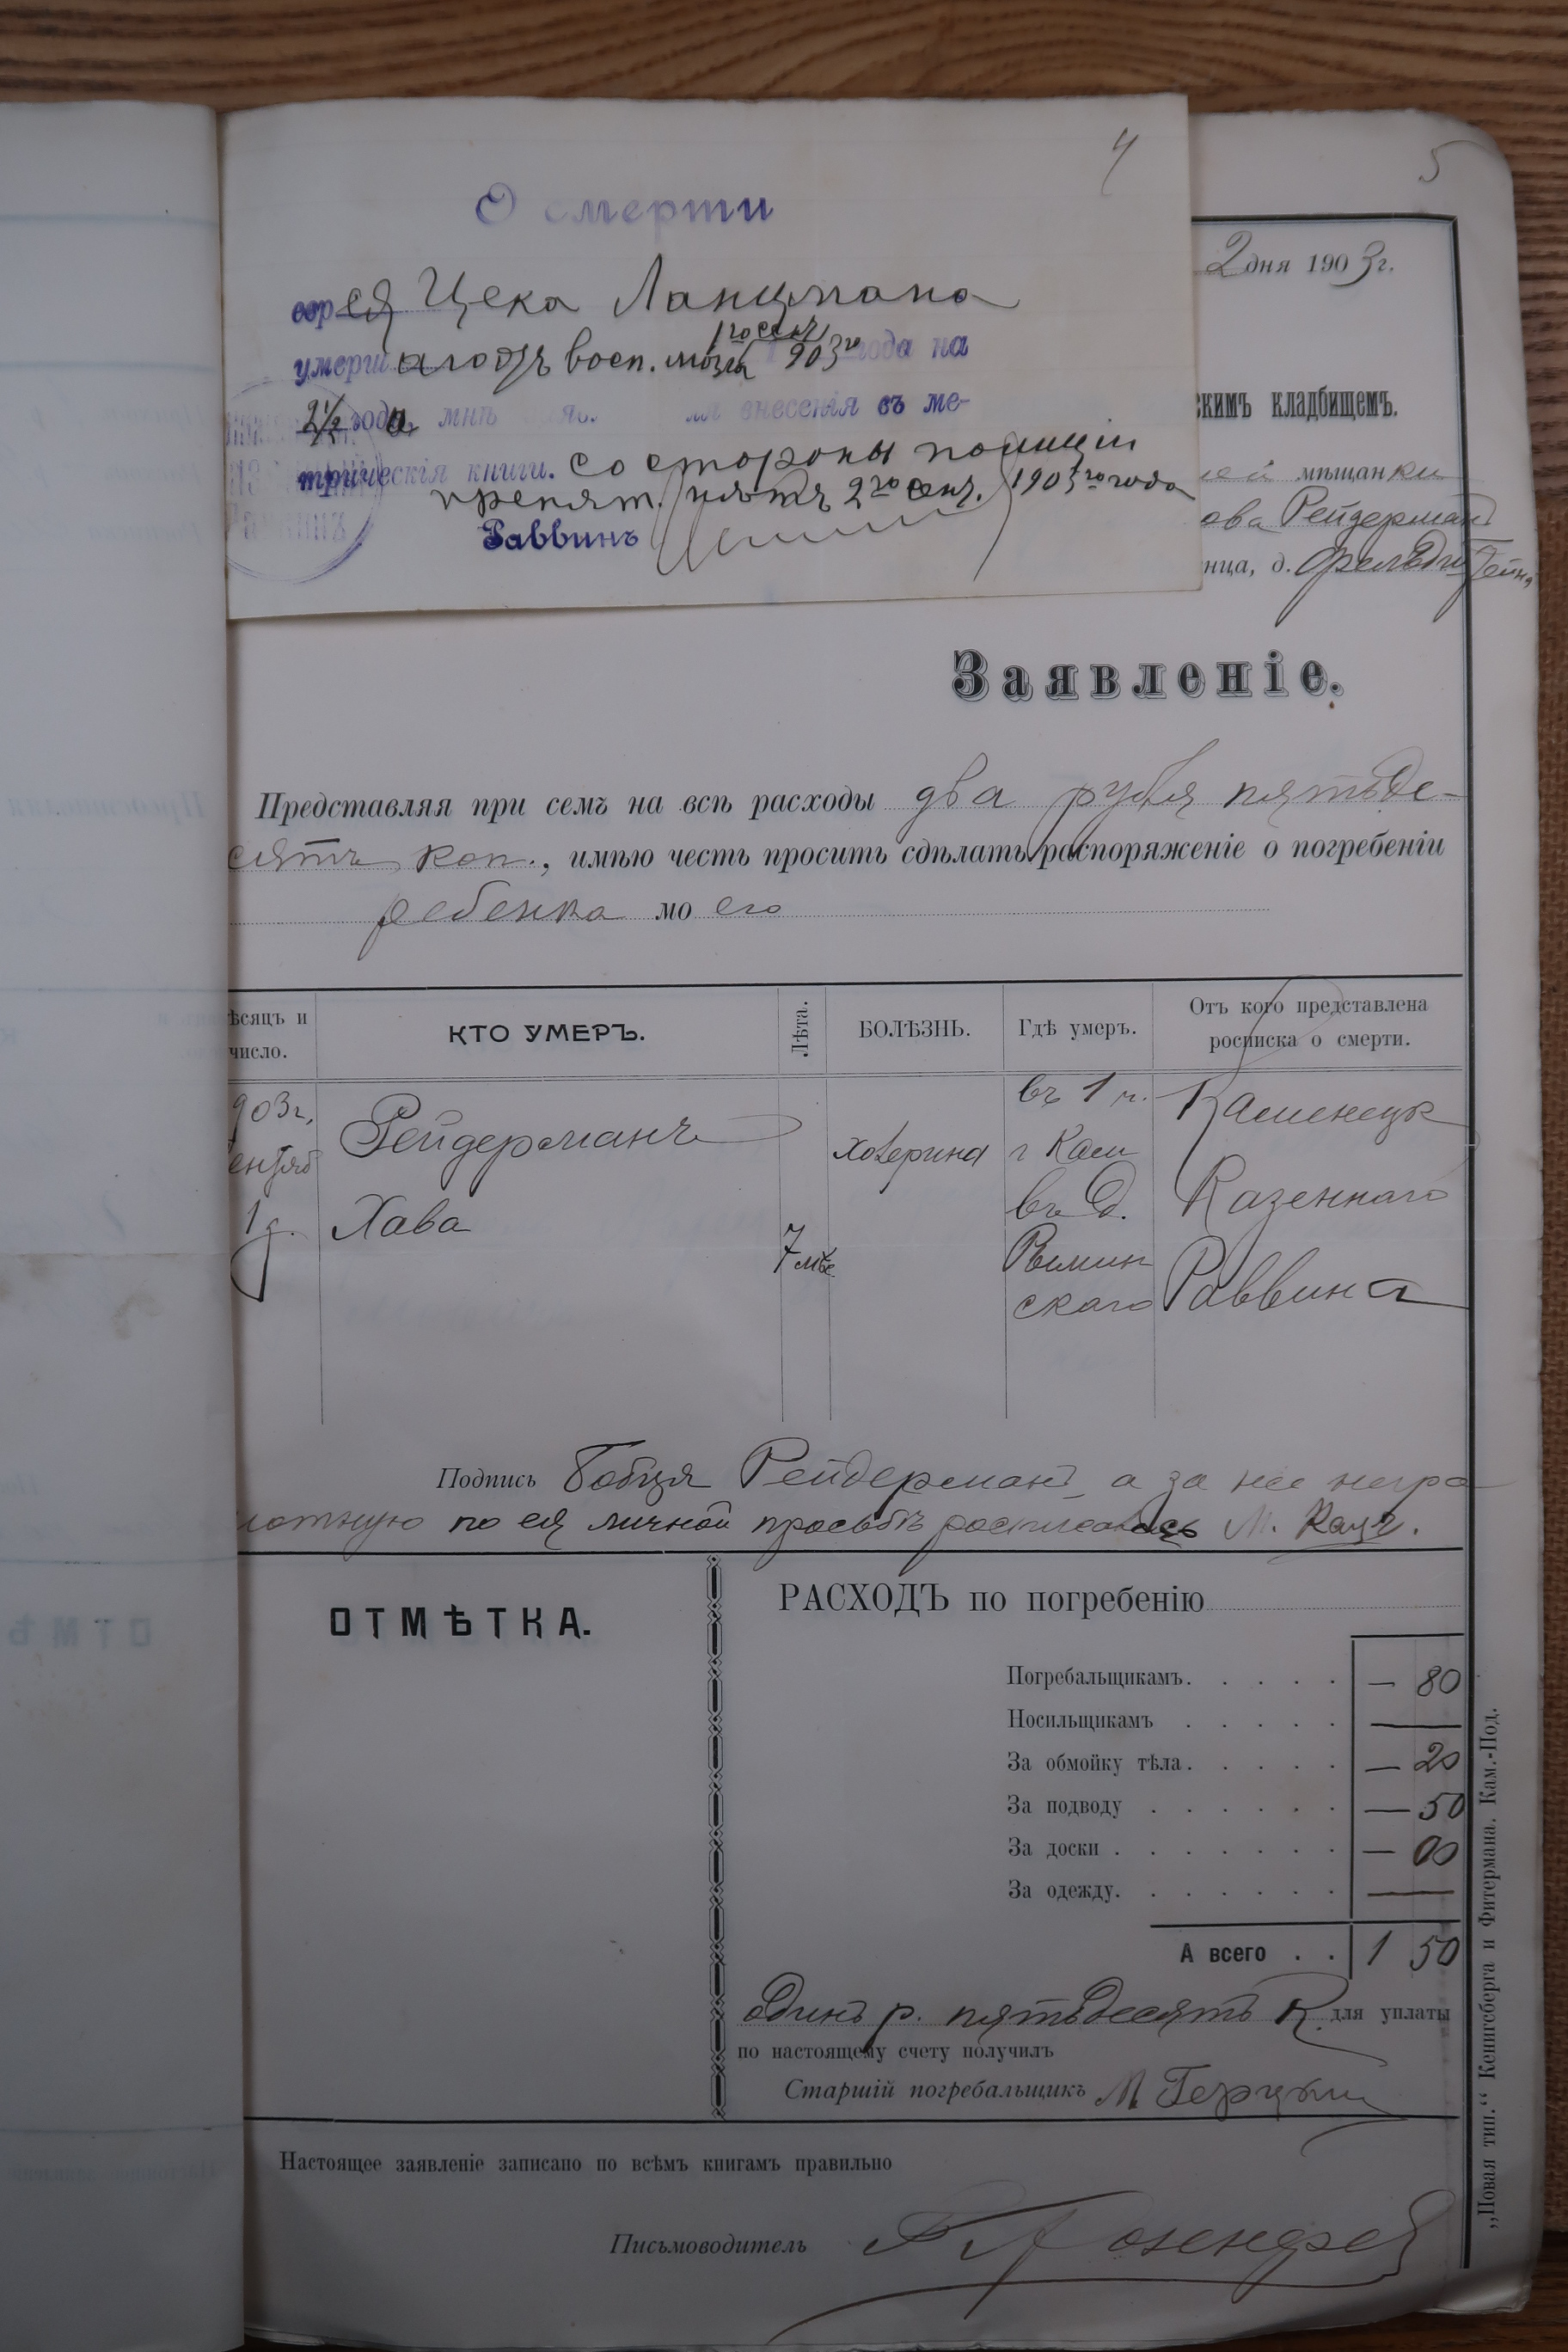 4
5
О смерти
евр ея Цека Ланцмана
1го сент
умерш аго отъ восп. мозга 903го года на
2½ года мнѣ для внесенія въ ме-
трическія книги. со стороны полиціи
препят. нѣтъ 2го сент. 1903го года
Раввинъ
2 дня 1903 г.
скимъ кладбищемъ.
мѣщанки
ова Рейдерманъ
нца, д.
Заявленіе.
Представляя при семъ на всѣ расходы два рубля пятьде-
сятъ коп., имѣю честь просить сдѣлать распоряженіе о погребеніи
ребенка моего
ѣсяцъ и число.
КТО УМЕРЪ.
Лѣта.
БОЛѢЗНЬ.
Гдѣ умеръ.
Отъ кого представлена росписка о смерти.
903г,
ентяб
1 д.
Рейдерманъ
Хава
7 мѣс
холерина
въ 1 ч.
г Кам
въ д.
Римин
скаго
Каменецк
Казеннаго
Раввина
Подпись Бобця Рейдерманъ, а за нее негра
мотную по ея личной просьбѣ росписалась М. Кацъ.
ОТМѢТКА.
РАСХОДЪ по погребенію
Погребальщикамъ. . . . . — 80
Носильщикамъ . . . . . —
За обмойку тѣла. . . . . — 20
За подводу . . . . . . — 50
За доски . . . . . . . — 00
За одежду. . . . . . . —
А всего . . 1 50
Одинъ р. пятьдесятъ К. для уплаты
по настоящему счету получилъ
Старшій погребальщикъ М.
Настоящее заявленіе записано по всѣмъ книгамъ правильно
Письмоводитель
„Новая тип.“ Кенигсберга и Фитермана. Кам.-Под.